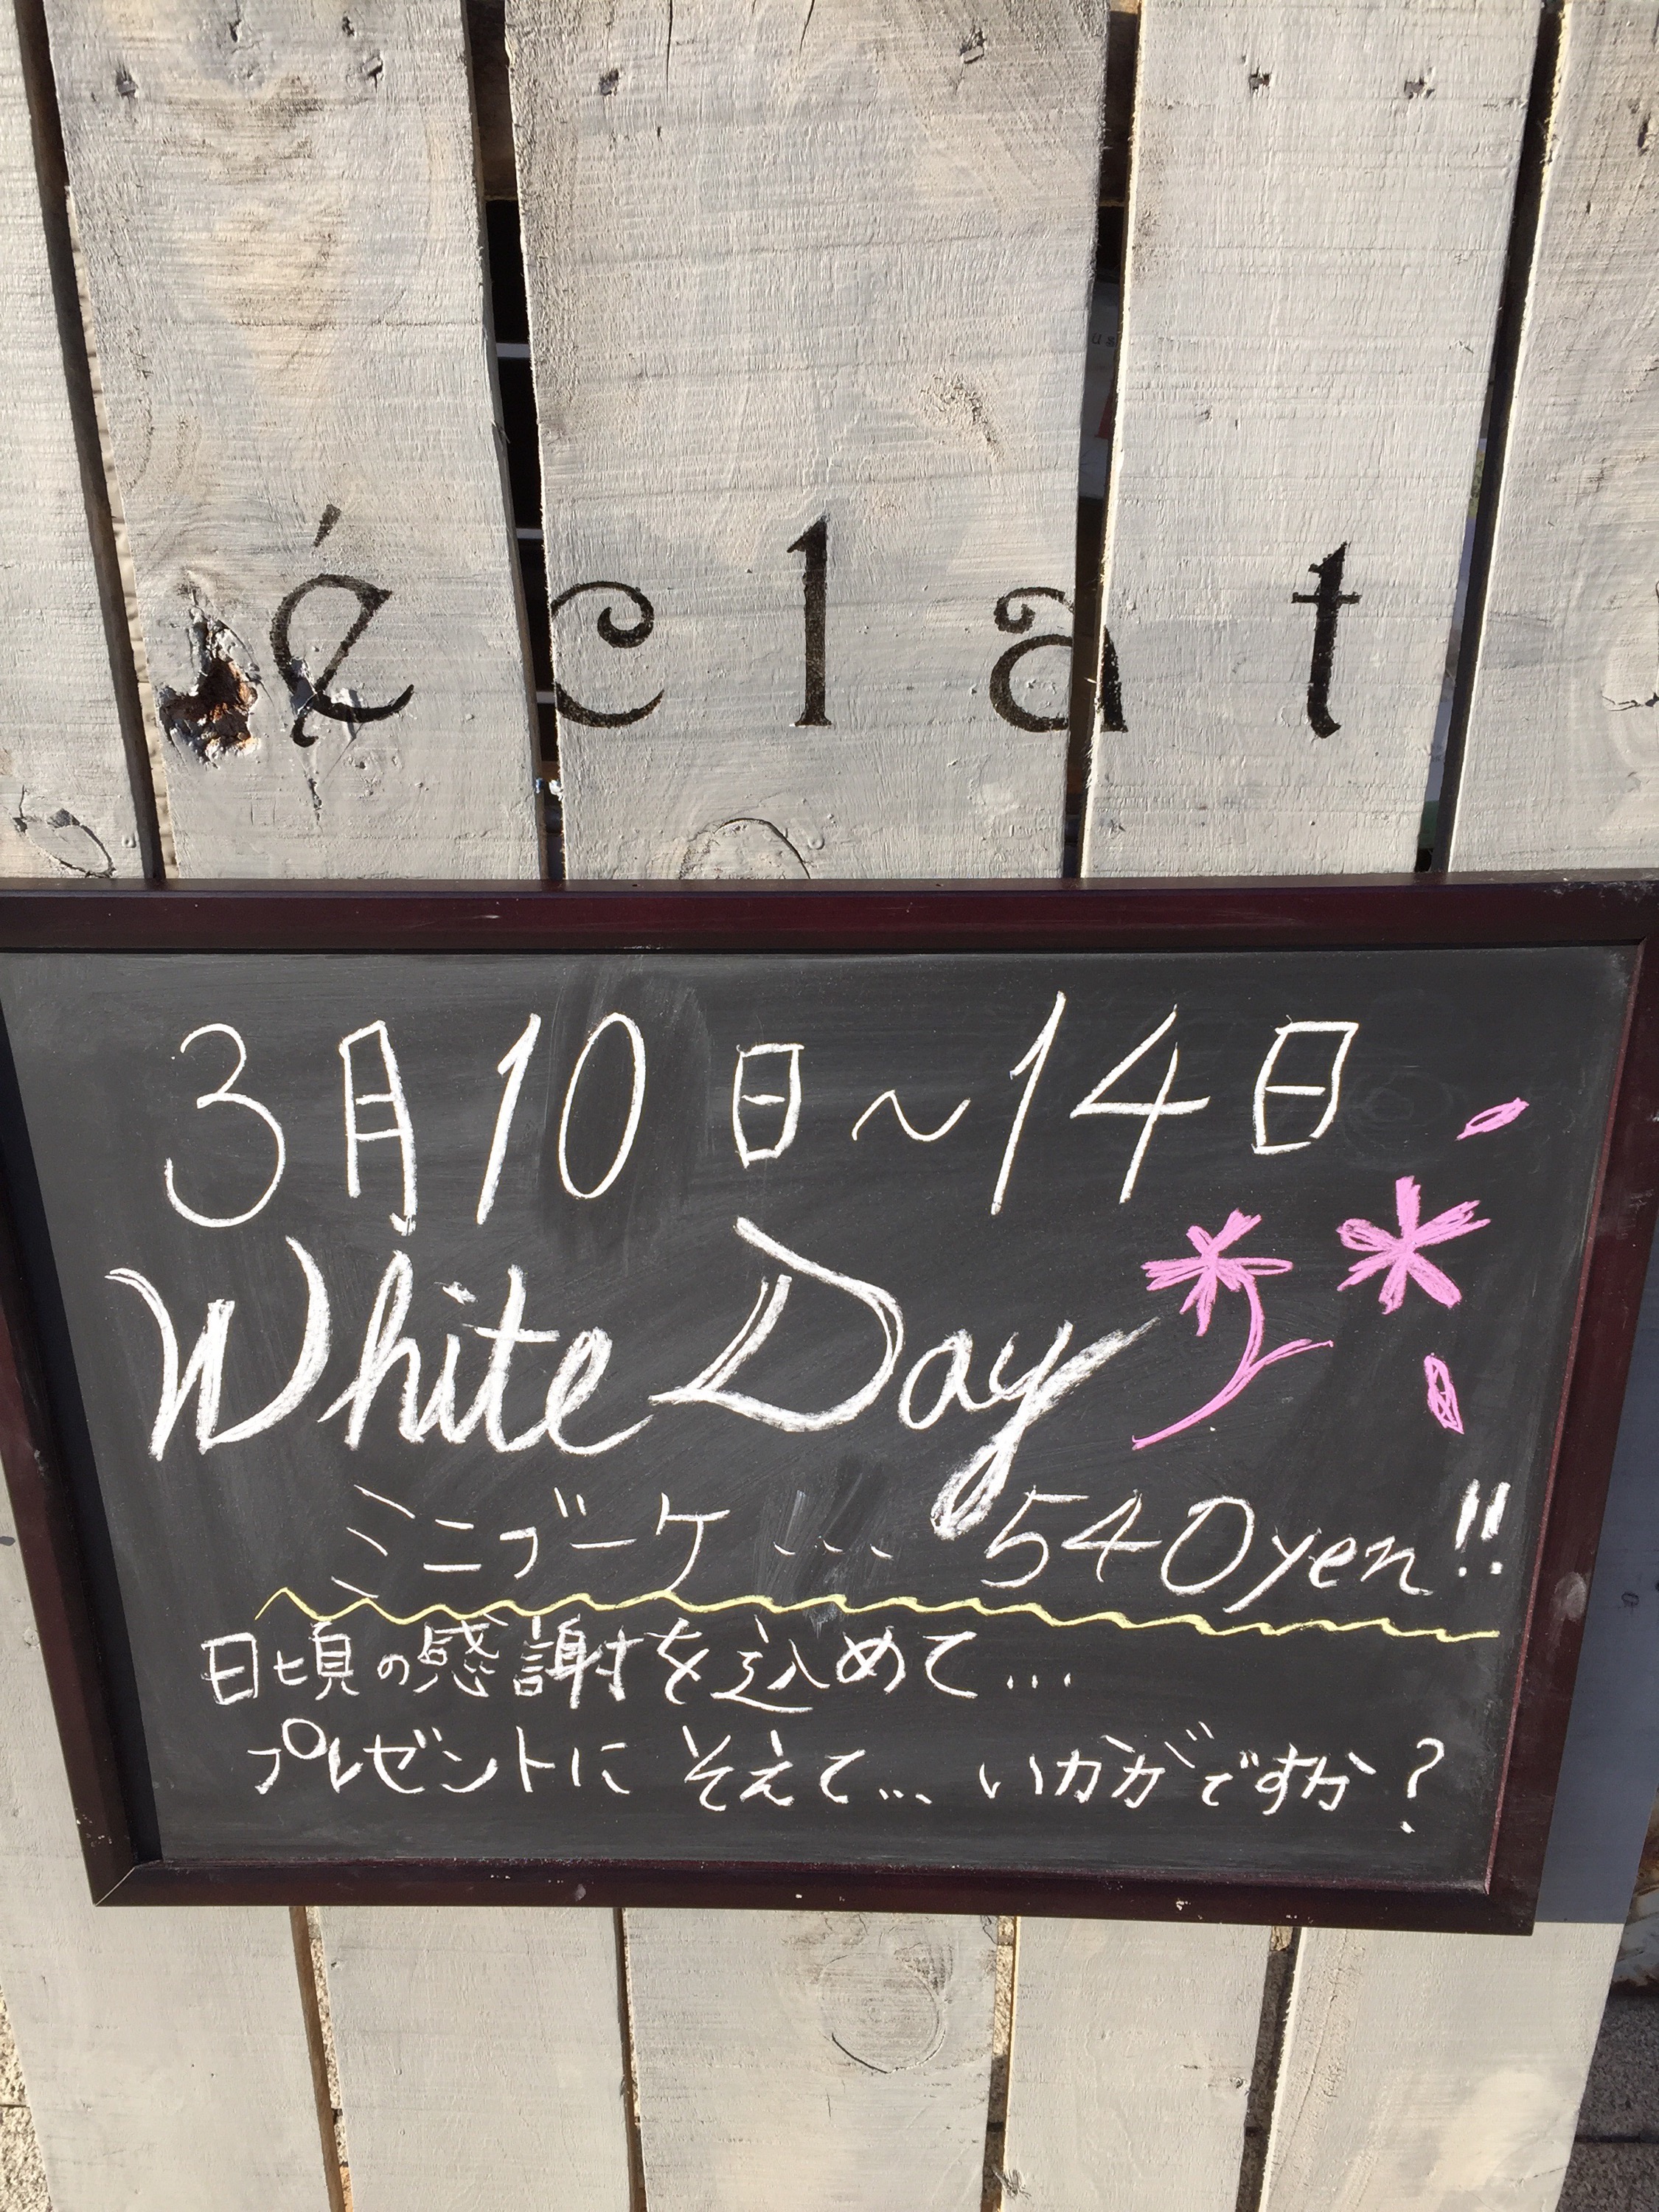 éclat
3月10日～14日
White Day
ミニブーケ… 540yen!!
日頃の感謝を込めて…
プレゼントに そえて… いかがですか？